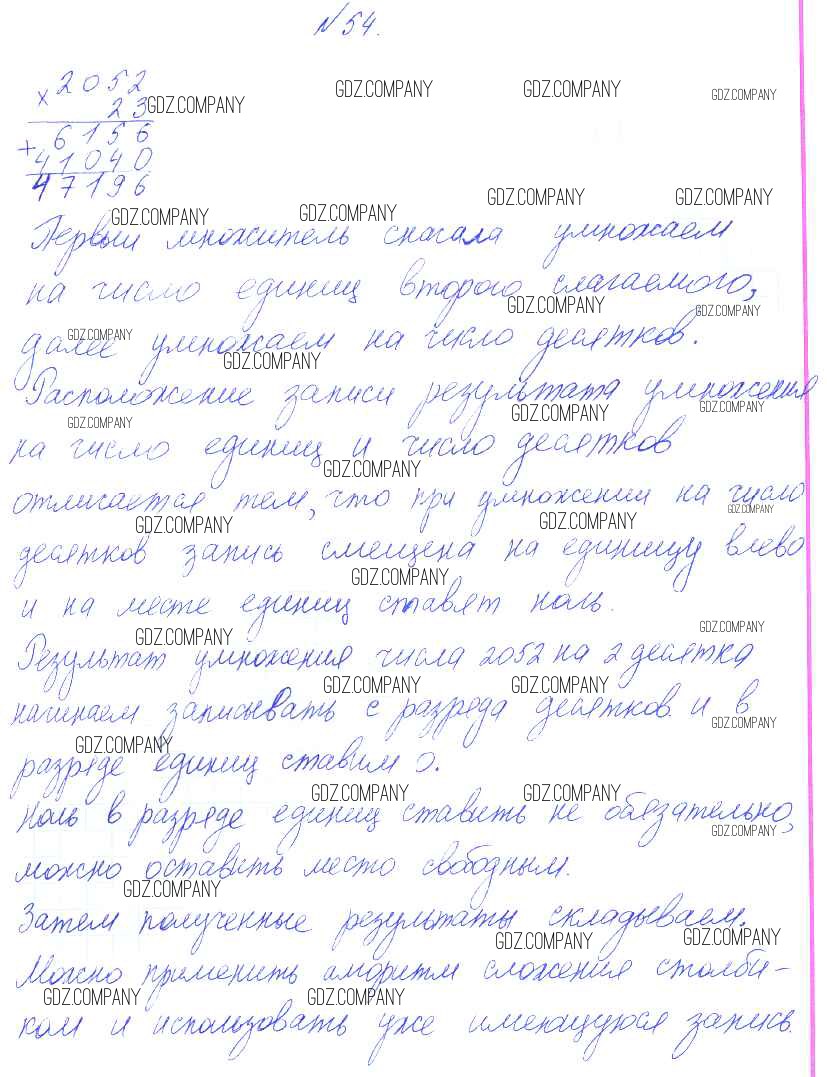 №54.
GDZ.COMPANY GDZ.COMPANY GDZ.COMPANY
× 2052
23 GDZ.COMPANY
+ 6156
41040
47196
GDZ.COMPANY GDZ.COMPANY
GDZ.COMPANY GDZ.COMPANY
Первый множитель сначала умножаем
на число единиц второго слагаемого,
GDZ.COMPANY GDZ.COMPANY
далее умножаем на число десятков.
GDZ.COMPANY GDZ.COMPANY
Расположение записи результата умножения
GDZ.COMPANY GDZ.COMPANY GDZ.COMPANY
на число единиц и число десятков
GDZ.COMPANY
отличается тем, что при умножении на число
GDZ.COMPANY GDZ.COMPANY GDZ.COMPANY
десятков запись смещена на единицу влево
GDZ.COMPANY
и на месте единиц ставят ноль.
GDZ.COMPANY GDZ.COMPANY
Результат умножения числа 2052 на 2 десятка
GDZ.COMPANY GDZ.COMPANY
начинаем записывать с разряда десятков и в
GDZ.COMPANY GDZ.COMPANY
разряде единиц ставим 0.
GDZ.COMPANY GDZ.COMPANY
Ноль в разряде единиц ставить не обязательно,
GDZ.COMPANY
можно оставить место свободным.
GDZ.COMPANY
Затем полученные результаты складываем.
GDZ.COMPANY GDZ.COMPANY
Можно применить алгоритм сложения столби-
GDZ.COMPANY GDZ.COMPANY
ком и использовать уже имеющуюся запись.